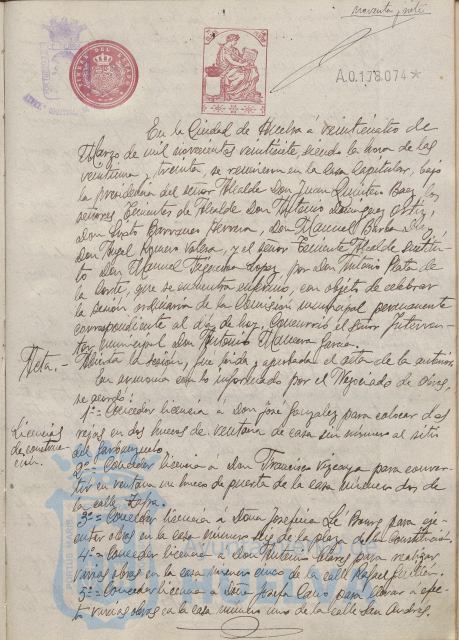 noventa y siete
A.0.178.074*
En la Ciudad de Huelva á veintiocho de
Marzo de mil novecientos veintisiete, siendo la hora de las
veintiuna y treinta, se reunieron en la Casa Capitular, bajo
la presidencia del señor Alcalde Don Juan Quintero Baez, los
señores Tenientes de Alcalde Don Antonio Dominguez Ortiz,
Don Barranco Herrera, Don Manuel Barba Diaz,
Don Angel Romero Valera, y el señor Teniente Alcalde Sustitu-
to Don Manuel Figueroa Lopez, por Don Antonio Plata de
la Corte, que se encuentra enfermo, con objeto de celebrar
la sesión ordinaria de la Comisión municipal permanente
correspondiente al día de hoy. Concurrió el señor Interven-
tor municipal Don Antonio
Acta.- Abierta la sesión, fue leida y aprobada el acta de la anterior.
En armonia con lo informado por el Negociado de Obras,
se acordó:
Licencias
de construc-
cion.
1º- Conceder licencia á Don José Gonzalez para colocar dos
rejas en dos huecos de ventana de casa sin número al sitio
del
2º- Conceder licencia a don Francisco Vizcaya para conver-
tir en ventana un hueco de puerta de la casa número dos de
la calle Zafra.
3º- Conceder licencia á Doña Josefina Le Bourg para eje-
cutar obras en la casa número de la plaza de la Constitución.
4º- Conceder licencia a don Antonio para realizar
varias obras en la casa número cinco de la calle Rafael Guillén.
5º- Conceder licencia a Doña Josefa Cano para llevar a efec-
to varias obras en la casa número uno de la calle San Andrés.
PORTUS MARIS